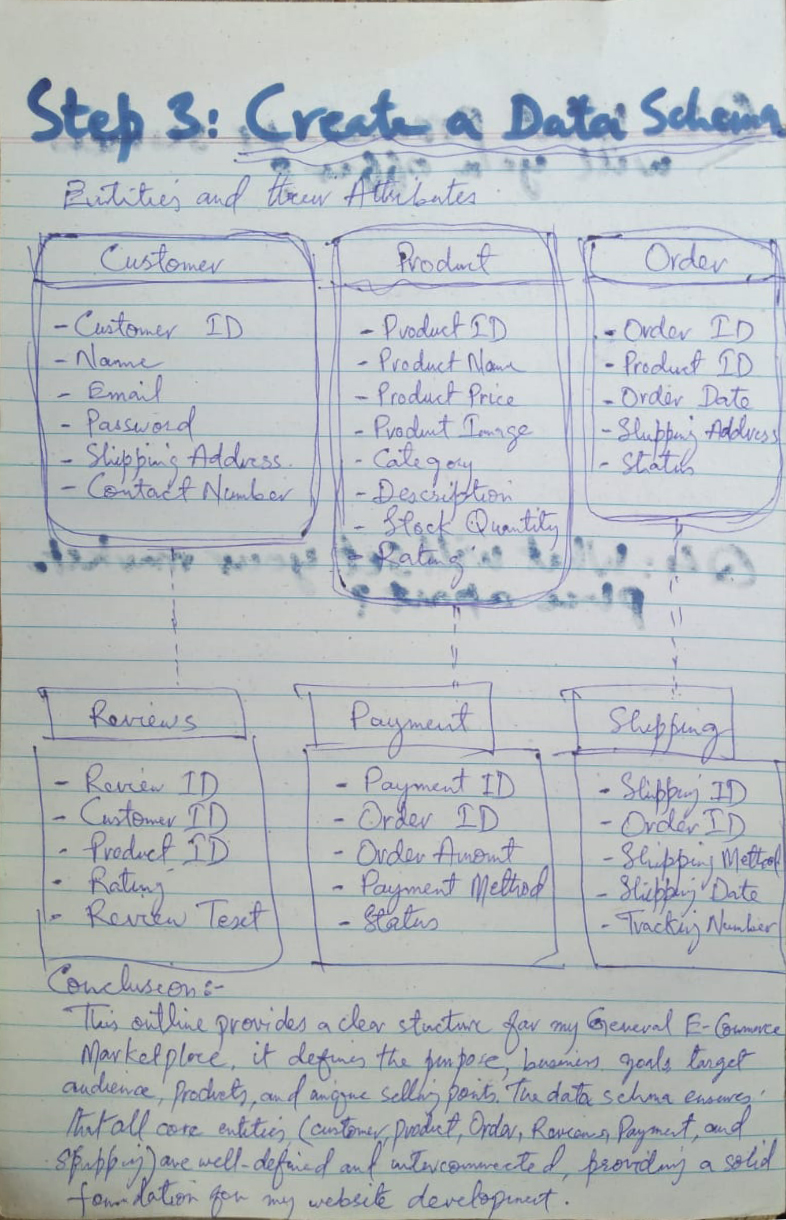 Step 3: Create a Data Schema
Entities and their Attributes
Customer
- Customer ID
- Name
- Email
- Password
- Shipping Address.
- Contact Number
Product
- Product ID
- Product Name
- Product Price
- Product Image
- Category
- Description
- Stock Quantity
- Rating
Order
- Order ID
- Product ID
- Order Date
- Shipping Address
- Status
Reviews
- Review ID
- Customer ID
- Product ID
- Rating
- Review Text
Payment
- Payment ID
- Order ID
- Order Amount
- Payment Method
- Status
Shipping
- Shipping ID
- Order ID
- Shipping Method
- Shipping Date
- Tracking Number
Conclusion:-
This outline provides a clear structure for my General E-Commerce
Marketplace, it defines the purpose, business goals target
audience, products, and unique selling points. The data schema ensures
that all core entities, (customer, product, Order, Reviews, Payment, and
Shipping) are well-defined and interconnected, providing a solid
foundation for my website development.